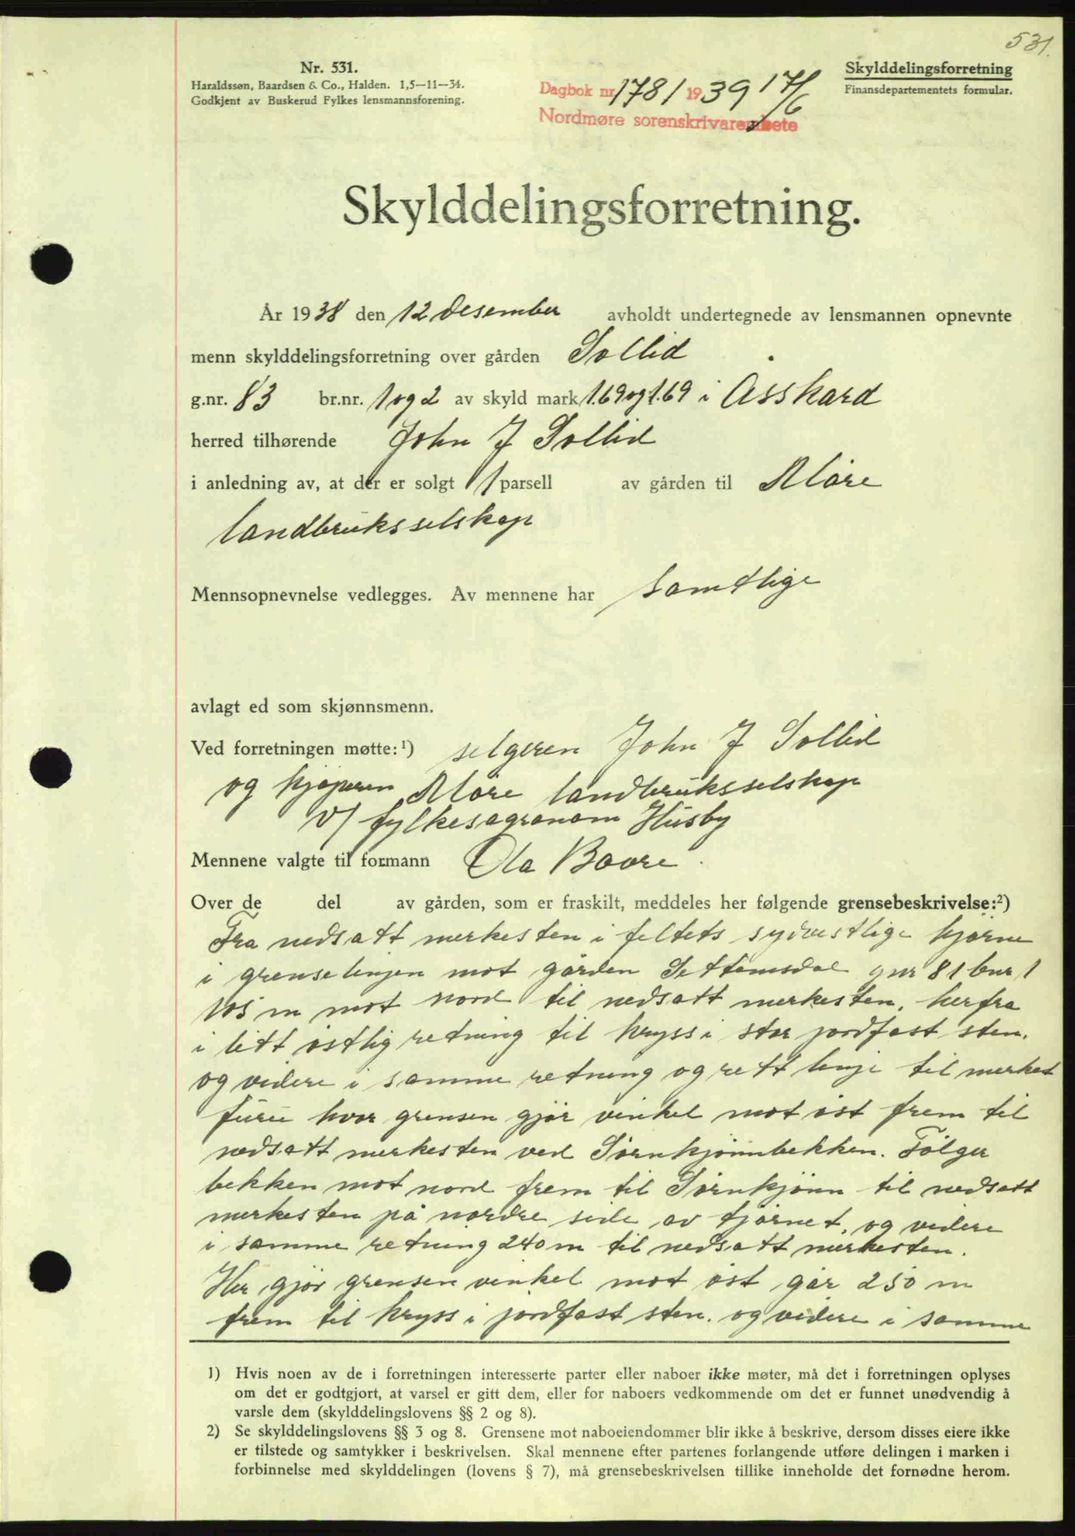 531.
Nr. 531.
Haraldssøn, Baardsen & Co., Halden. 1,5—11—34.
Godkjent av Buskerud Fylkes lensmannsforening.
Dagbok nr. 1781 1939 17/6
Nordmøre sorenskrivarembete
Skylddelingsforretning
Finansdepartementets formular.
Skylddelingsforretning.
År 1938 den 12 desember avholdt undertegnede av lensmannen opnevnte
menn skylddelingsforretning over gården Sollid
g.nr. 83 br.nr. 1 og 2 av skyld mark 1.69 og 1.69 i Åsskard
herred tilhørende John J Sollid
i anledning av, at der er solgt 1 parsell av gården til Møre
landbruksselskap
Mennsopnevnelse vedlegges. Av mennene har samtlige
avlagt ed som skjønnsmenn.
Ved forretningen møtte:¹) selgeren John J Sollid
og kjøperen Møre landbruksselskap
v/ fylkesagronom Husby
Mennene valgte til formann Ola Bøvre.
Over de del av gården, som er fraskilt, meddeles her følgende grensebeskrivelse:²)
Fra nedsatt merkesten i feltets sydvestlige hjørne
i grenselinjen mot gården Settemsdal gnr 81 bnr 1
105 m mot nord til nedsatt merkesten, herfra
i litt østlig retning til kryss i stor jordfast sten.
og videre i samme retning og rett linje til merket
furu hvor grensen gjør vinkel mot øst frem til
nedsatt merkesten ved Sørnkjønnbekken. Følger
bekken mot nord frem til Sørnkjønn til nedsatt
merkesten på nordre side av tjørnet, og videre
i samme retning 240 m til nedsatt merkesten.
Her gjør grensen vinkel mot øst går 250 m
frem til kryss i jordfast sten. og videre i samme
1) Hvis noen av de i forretningen interesserte parter eller naboer ikke møter, må det i forretningen oplyses
om det er godtgjort, at varsel er gitt dem, eller for naboers vedkommende om det er funnet unødvendig å
varsle dem (skylddelingslovens §§ 2 og 8).
2) Se skylddelingslovens §§ 3 og 8. Grensene mot naboeiendommer blir ikke å beskrive, dersom disses eiere ikke
er tilstede og samtykker i beskrivelsen. Skal mennene efter partenes forlangende utføre delingen i marken i
forbinnelse med skylddelingen (lovens § 7), må grensebeskrivelsen tillike inneholde det fornødne herom.